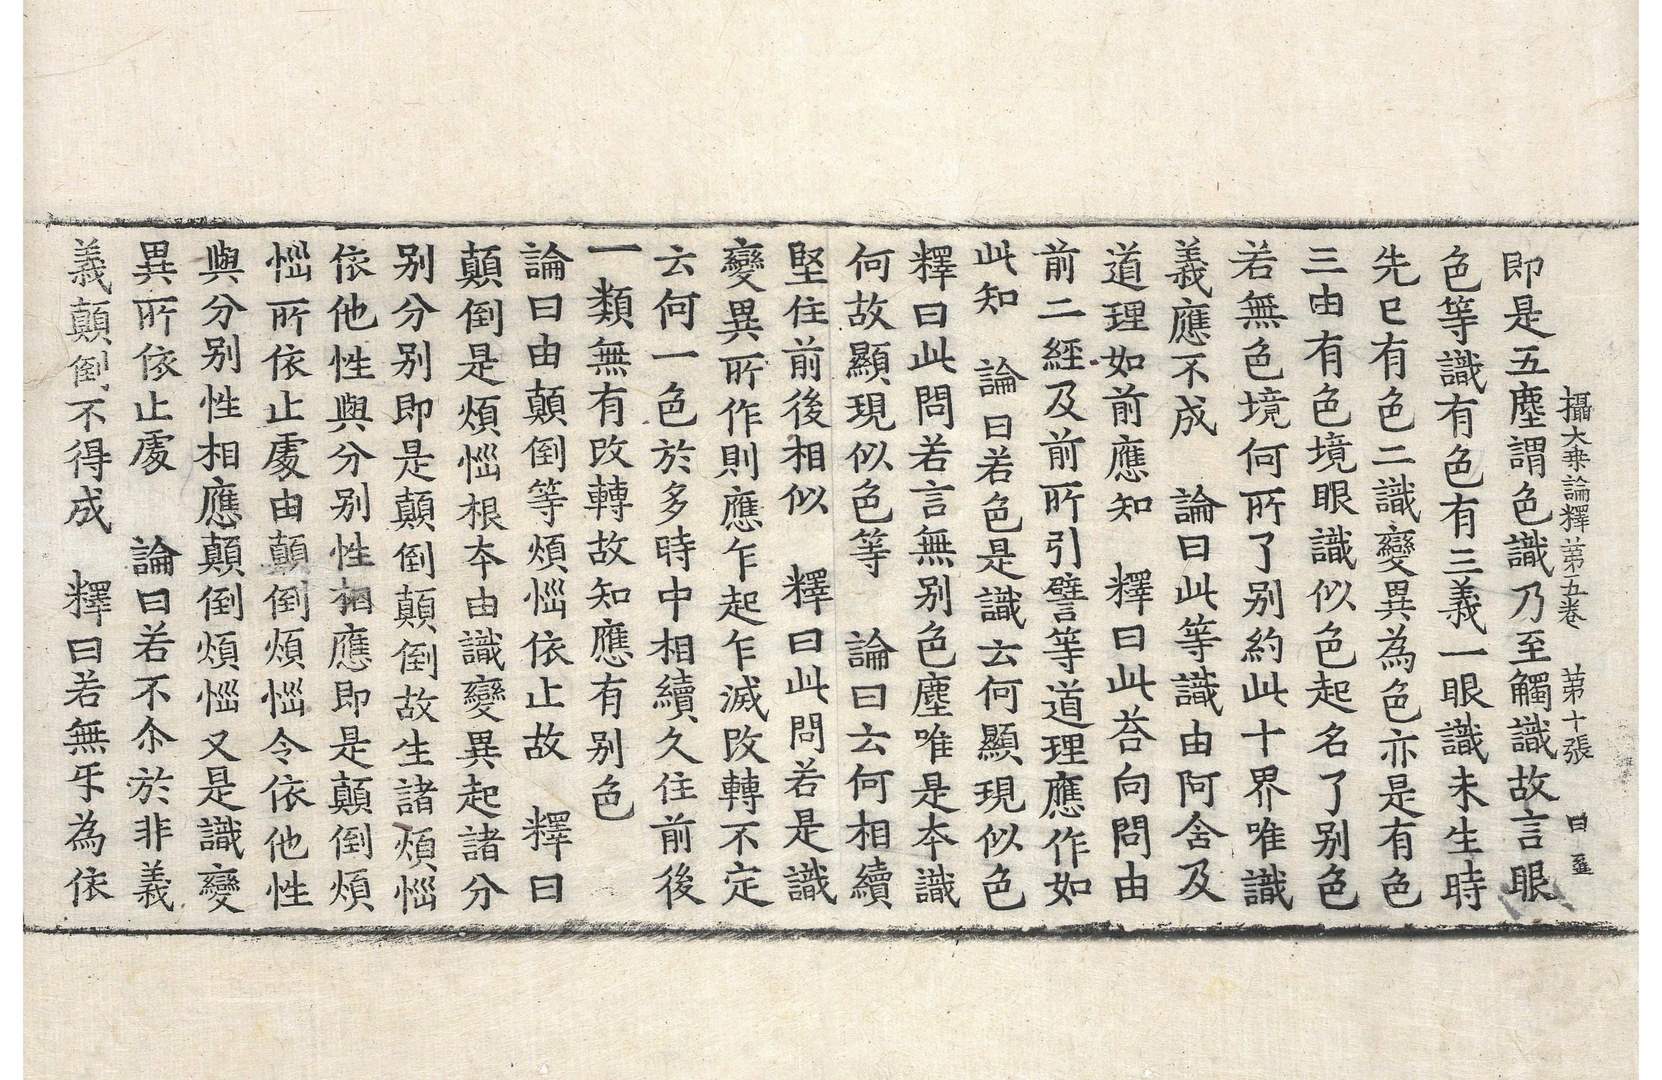 攝大乗論釋第五卷 第十張 曰
即是五塵謂色識乃至觸識故言眼
色等識有色有三義一眼識未生時
先已有色二識變異為色亦是有色
三由有色境眼識似色起名了别色
若無色境何所了别約此十界唯識
義應不成 論曰此等識由阿含及
道理如前應知 釋曰此荅向問由
前二經及前所引譬等道理應作如
此知 論曰若色是識云何顯現似色
釋曰此問若言無别色塵唯是本識
何故顯現似色等 論曰云何相續
堅住前後相似 釋曰此問若是識
變異所作則應乍起乍滅改轉不定
云何一色於多時中相續久住前後
一類無有改轉故知應有别色
論曰由顛倒等煩惱依止故 釋曰
顛倒是煩惱根本由識變異起諸分
别分别即是顛倒顛倒故生諸煩惱
依他性與分别性相應即是顛倒煩
惱所依止處由顛倒煩惱令依他性
與分别性相應顛倒煩惱又是識變
異所依止處 論曰若不尒於非義
義顛倒不得成 釋曰若無互為依